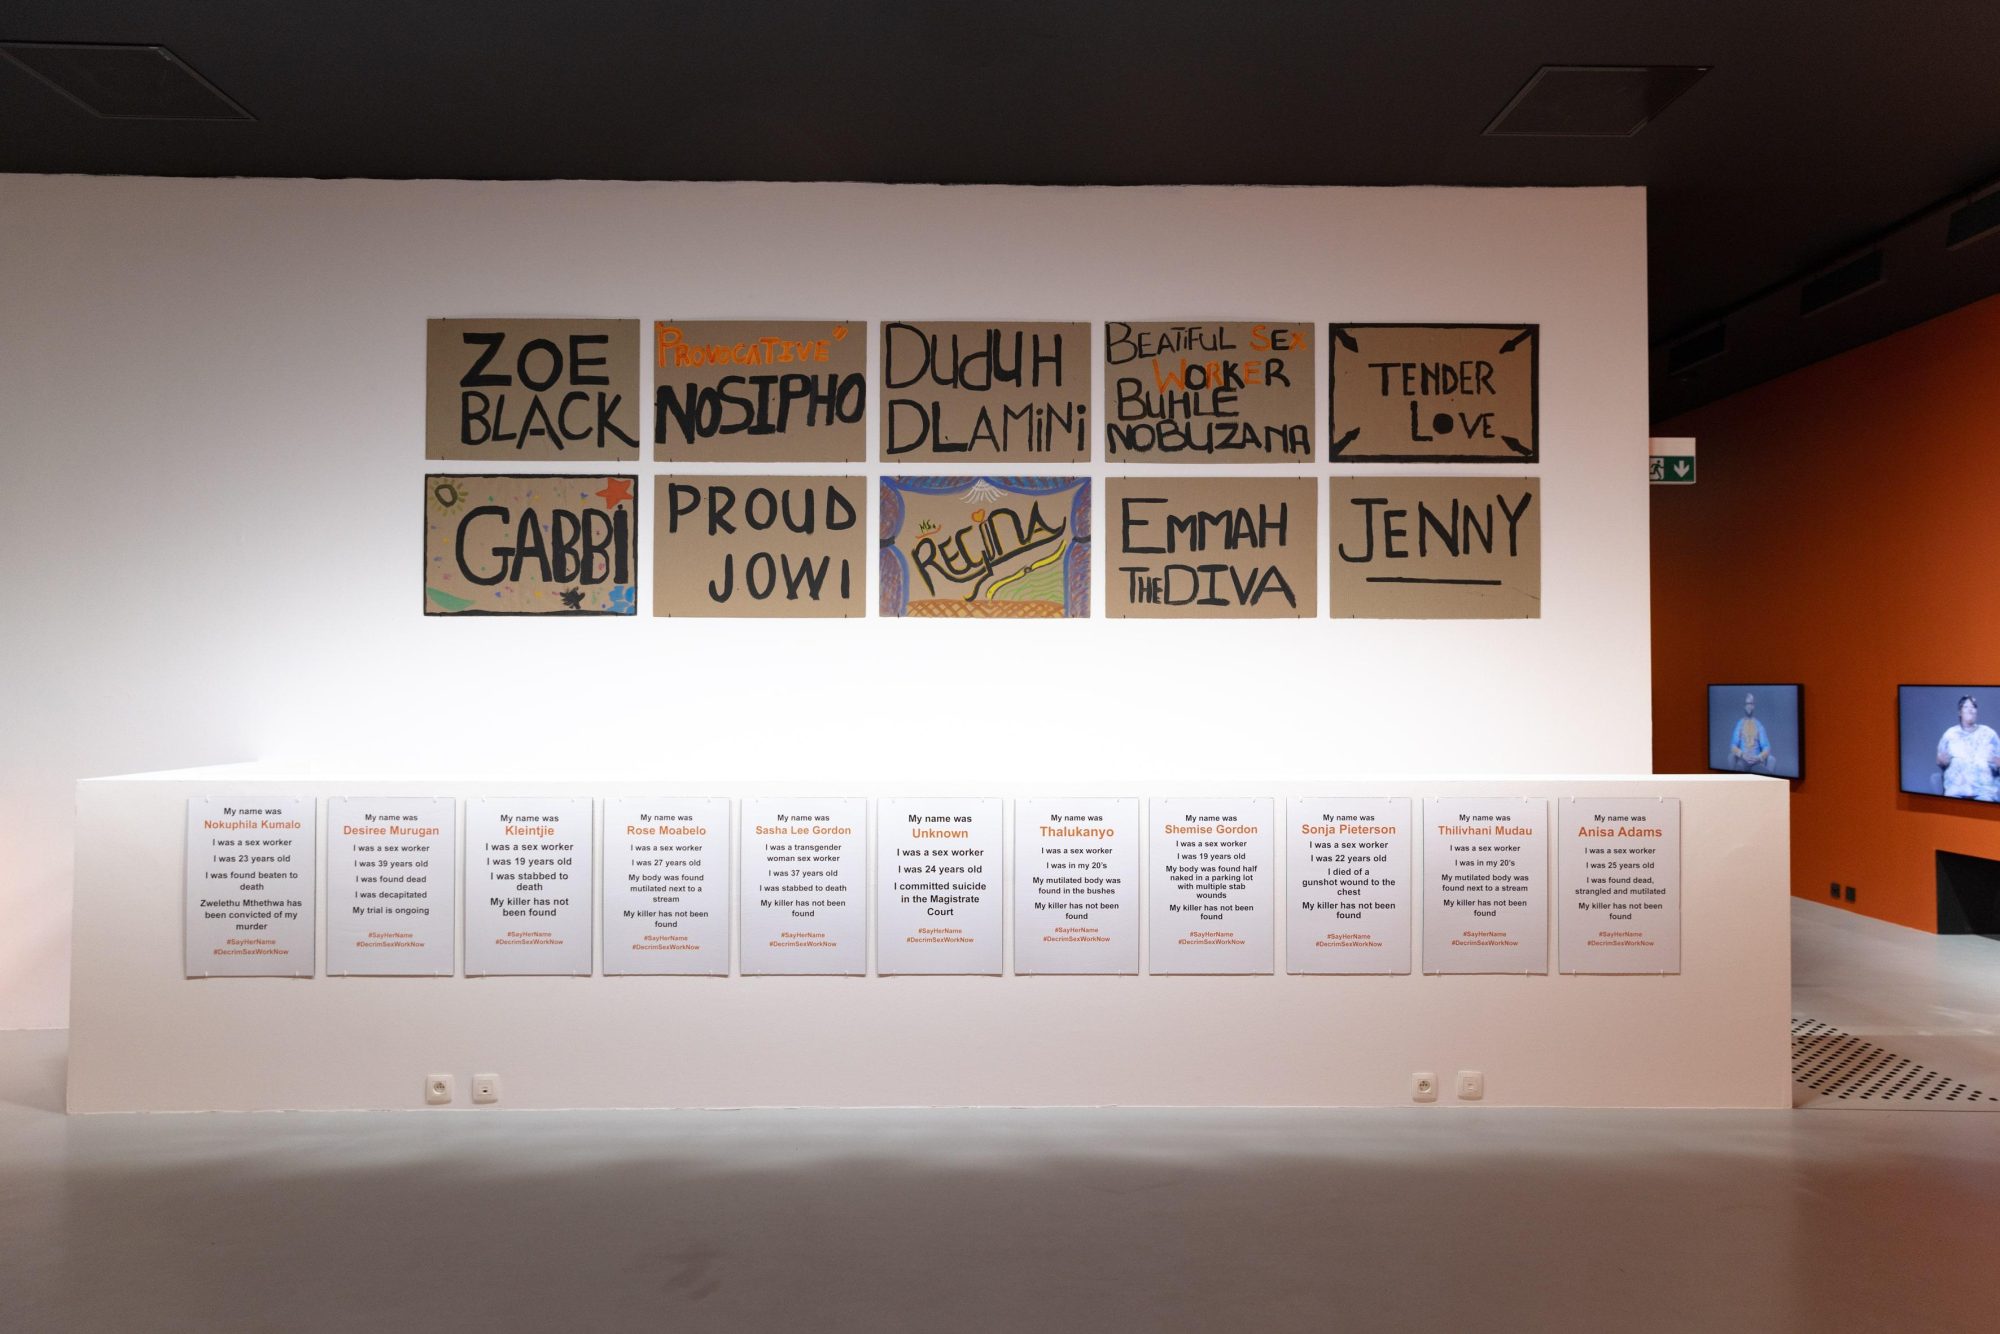 ZOE
BLACK
"PROVOCATIVE"
NOSIPHO
DUdUH
DLAMiNi
BEATIFUL SEX
WORKER
BUHLE
NOBUZANA
TENDER
LOVE
GABBi
PROUD
JOWI
MS.
REGINA
EMMAH
THE DIVA
JENNY
My name was
Nokuphila Kumalo
I was a sex worker
I was 23 years old
I was found beaten to
death
Zwelethu Mthethwa has
been convicted of my
murder
#SayHerName
#DecrimSexWorkNow
My name was
Desiree Murugan
I was a sex worker
I was 39 years old
I was found dead
I was decapitated
My trial is ongoing
#SayHerName
#DecrimSexWorkNow
My name was
Kleintjie
I was a sex worker
I was 19 years old
I was stabbed to
death
My killer has not
been found
#SayHerName
#DecrimSexWorkNow
My name was
Rose Moabelo
I was a sex worker
I was 27 years old
My body was found
mutilated next to a
stream
My killer has not been
found
#SayHerName
#DecrimSexWorkNow
My name was
Sasha Lee Gordon
I was a transgender
woman sex worker
I was 37 years old
I was stabbed to death
My killer has not been
found
#SayHerName
#DecrimSexWorkNow
My name was
Unknown
I was a sex worker
I was 24 years old
I committed suicide
in the Magistrate
Court
#SayHerName
#DecrimSexWorkNow
My name was
Thalukanyo
I was a sex worker
I was in my 20's
My mutilated body was
found in the bushes
My killer has not been
found
#SayHerName
#DecrimSexWorkNow
My name was
Shemise Gordon
I was a sex worker
I was 19 years old
My body was found half
naked in a parking lot
with multiple stab
wounds
My killer has not been
found
#SayHerName
#DecrimSexWorkNow
My name was
Sonja Pieterson
I was a sex worker
I was 22 years old
I died of a
gunshot wound to the
chest
My killer has not been
found
#SayHerName
#DecrimSexWorkNow
My name was
Thilivhani Mudau
I was a sex worker
I was in my 20's
My mutilated body was
found next to a stream
My killer has not been
found
#SayHerName
#DecrimSexWorkNow
My name was
Anisa Adams
I was a sex worker
I was 25 years old
I was found dead,
strangled and mutilated
My killer has not been
found
#SayHerName
#DecrimSexWorkNow